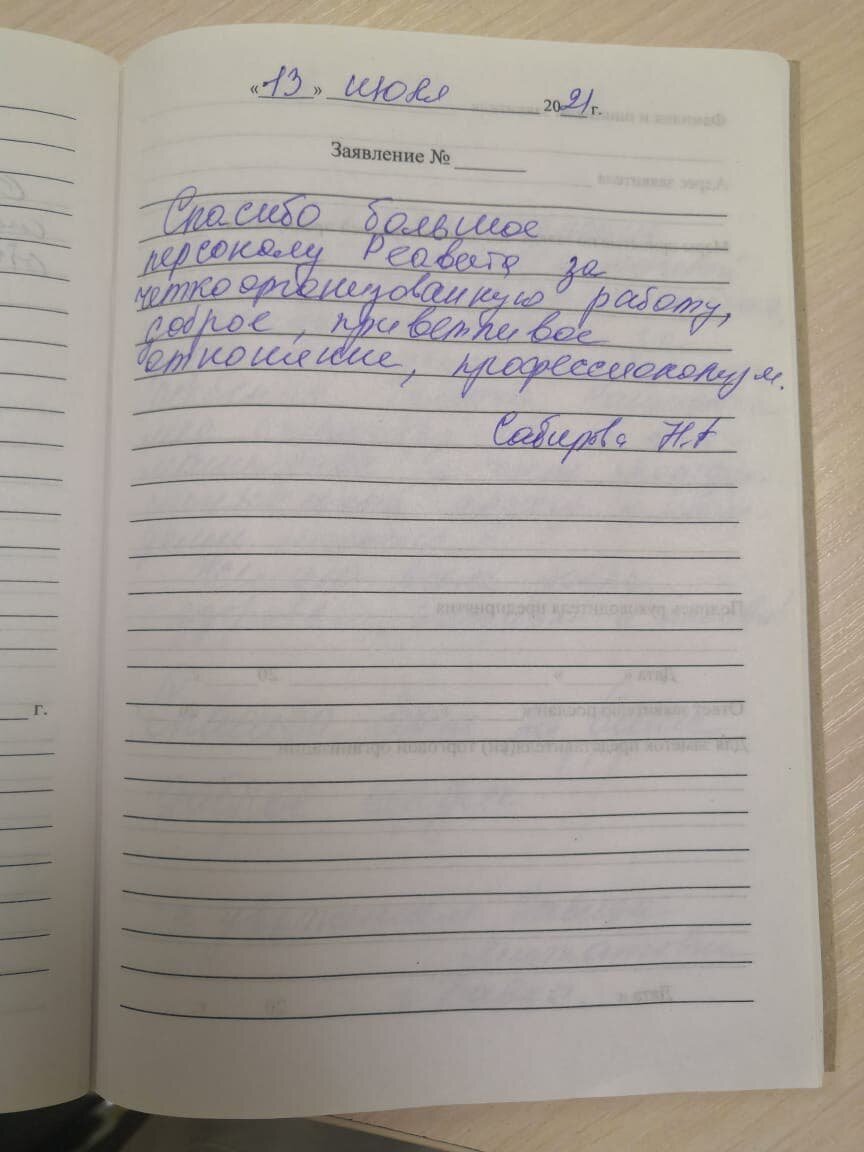 «13» июня 2021 г.
Заявление № ______
Спасибо большое
персоналу Реавита за
четко организованную работу,
доброе, приветливое
отношение, профессионализм.
Сабирова Н.А
г.